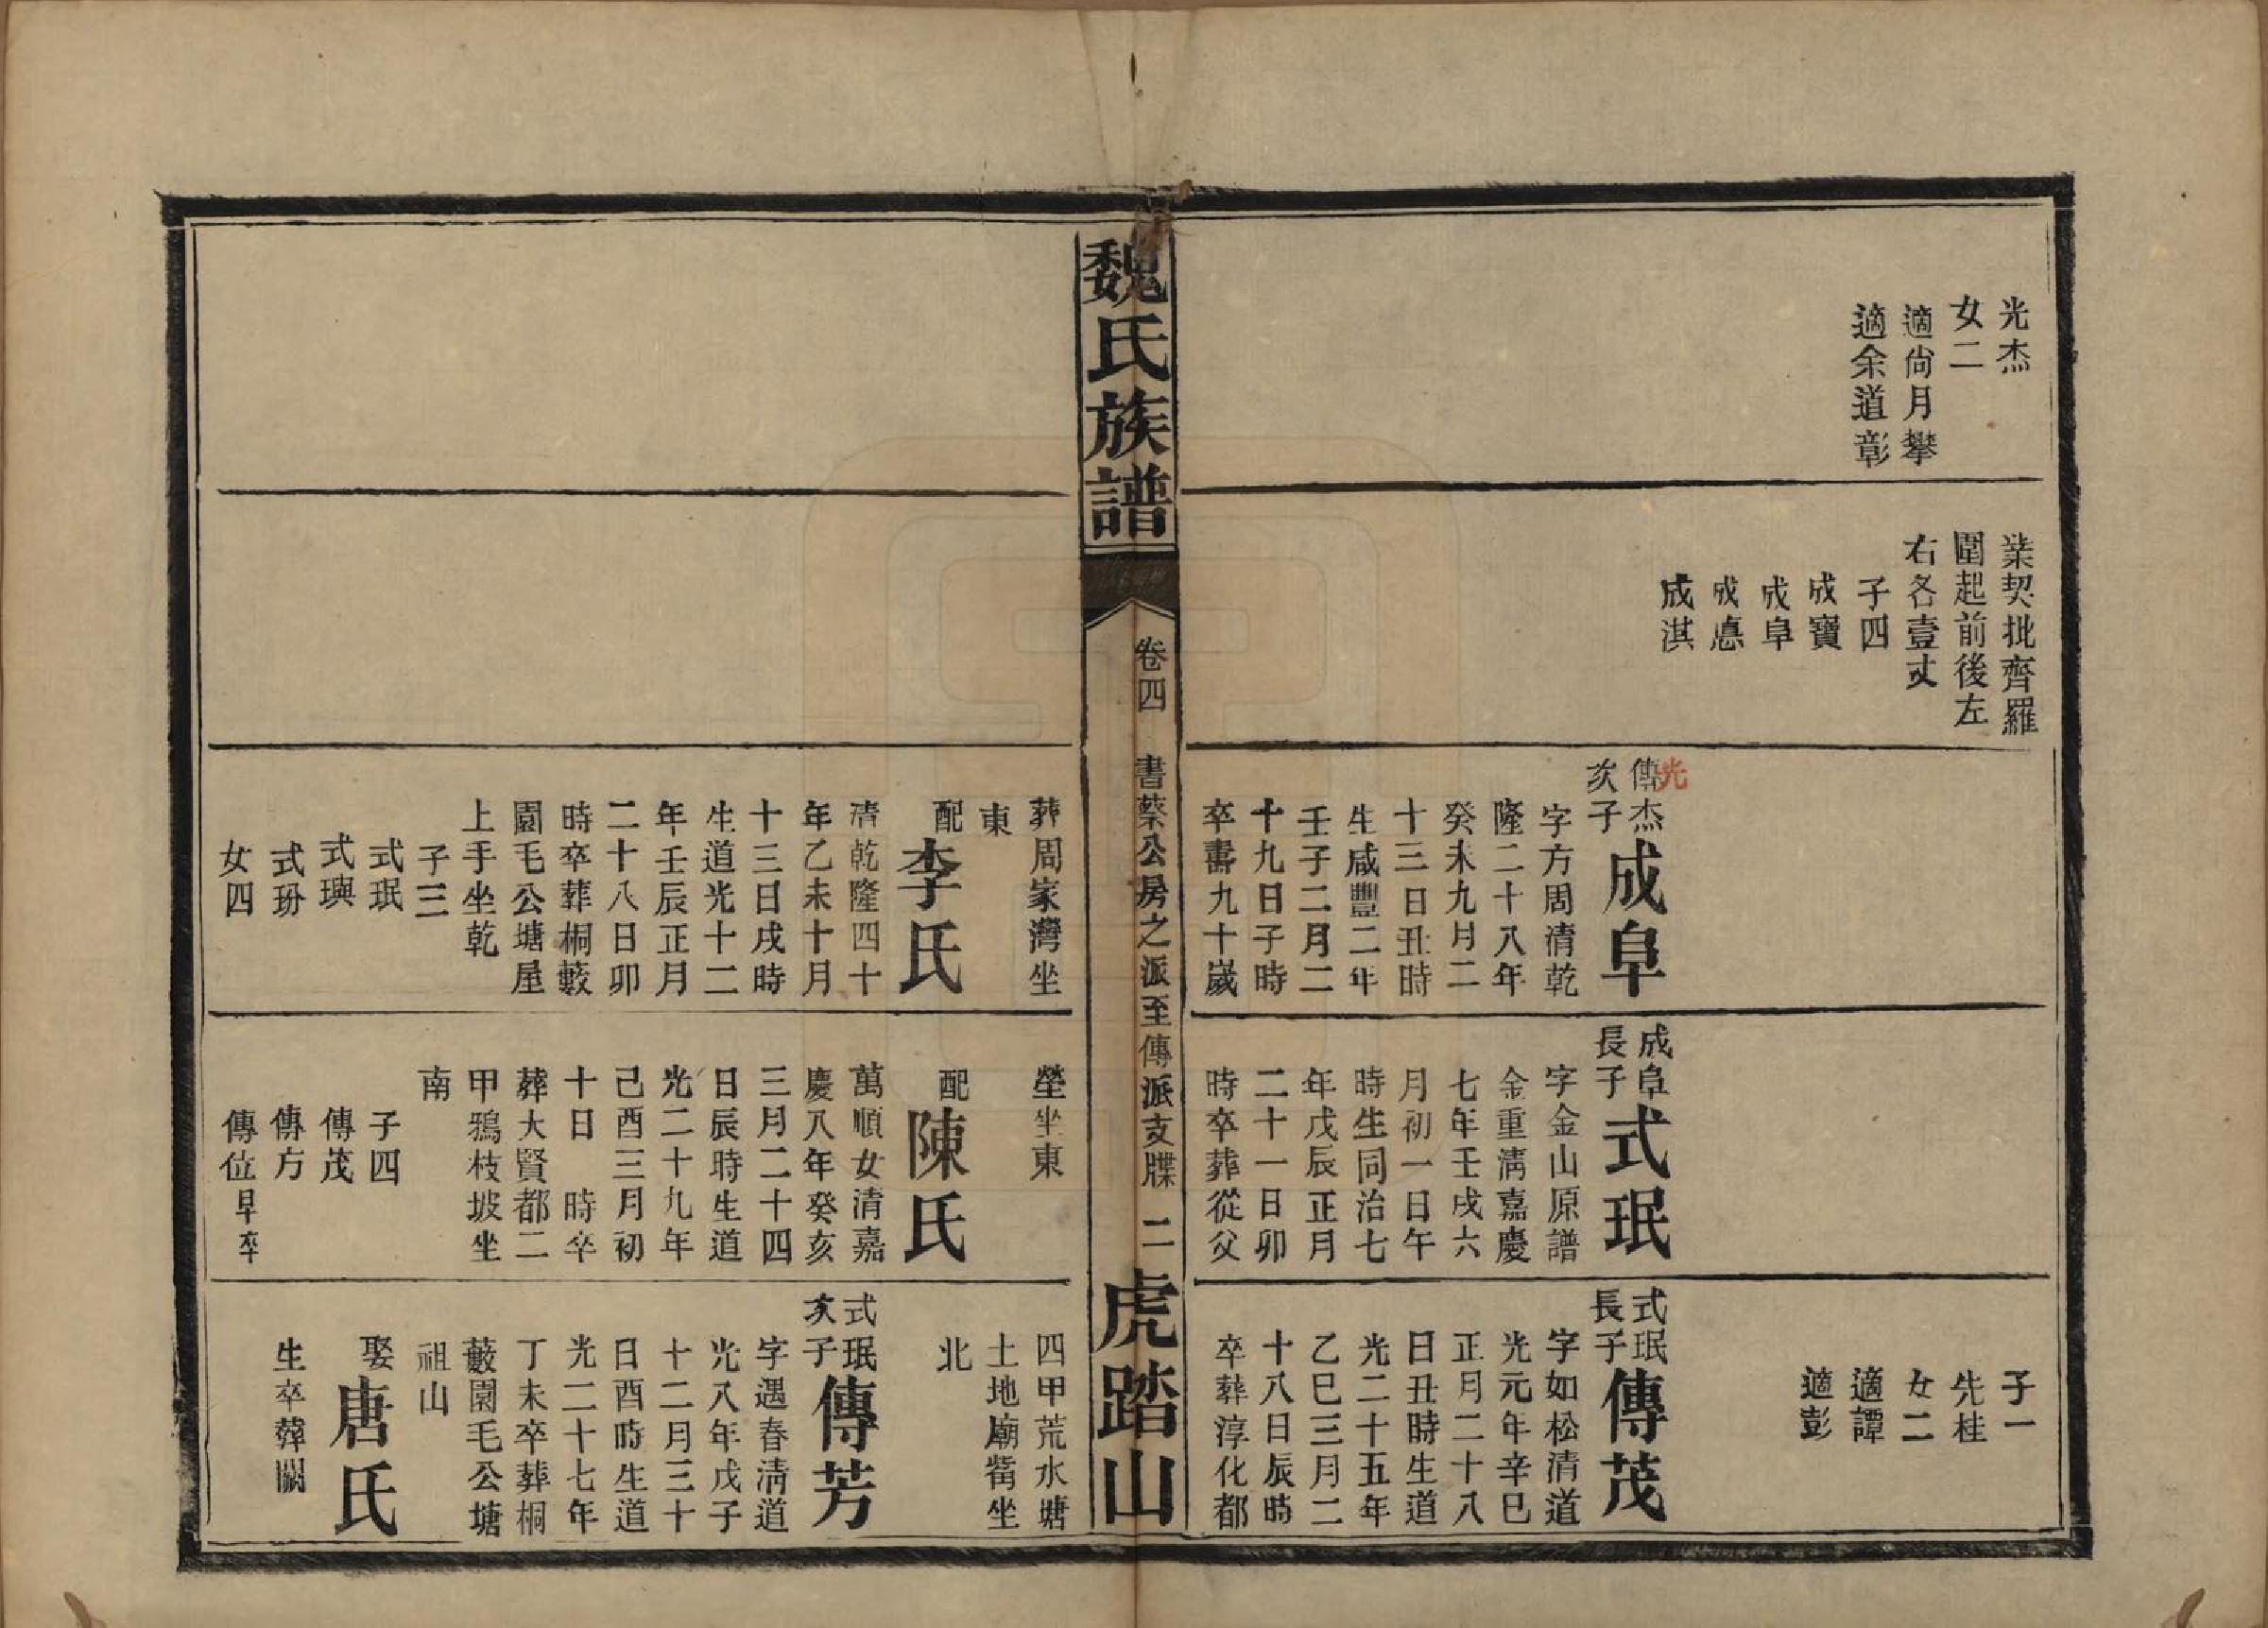 光杰
女二
適尙月攀
適余道彰
業契批齊羅
圍起前後左
右各壹丈
子四
成寶
成阜
成憙
成淇
傳杰
光
次子
成阜
字方周清乾
隆二十八年
癸未九月二
十三日丑時
生咸豐二年
壬子二月二
十九日子時
卒壽九十歲
成阜
長子
式珉
字金山原譜
金重淸嘉慶
七年壬戌六
月初一日午
時生同治七
年戊辰正月
二十一日卯
時卒葬從父
子一
先桂
女二
適譚
適彭
式珉
長子
傳茂
字如松清道
光元年辛巳
正月二十八
日丑時生道
光二十五年
乙巳三月二
十八日辰時
卒葬淳化都
魏氏族譜
卷四
書蔡公房之派至傳派支牒
二
虎踏山
葬周家灣坐
東
配
李氏
清乾隆四十
年乙未十月
十三日戌時
生道光十二
年壬辰正月
二十八日卯
時卒葬桐藪
園毛公塘屋
上手坐乾
子三
式珉
式璵
式玢
女四
塋坐東
配
陳氏
萬順女清嘉
慶八年癸亥
三月二十四
日辰時生道
光二十九年
己酉三月初
十日 時卒
葬大賢都二
甲鴉枝坡坐
南
子四
傳茂
傳方
傳位早卒
四甲荒水塘
土地廟觜坐
北
式珉
次子
傳芳
字遇春淸道
光八年戊子
十二月三十
日酉時生道
光二十七年
丁未卒葬桐
藪園毛公塘
祖山
娶
唐氏
生卒葬闕